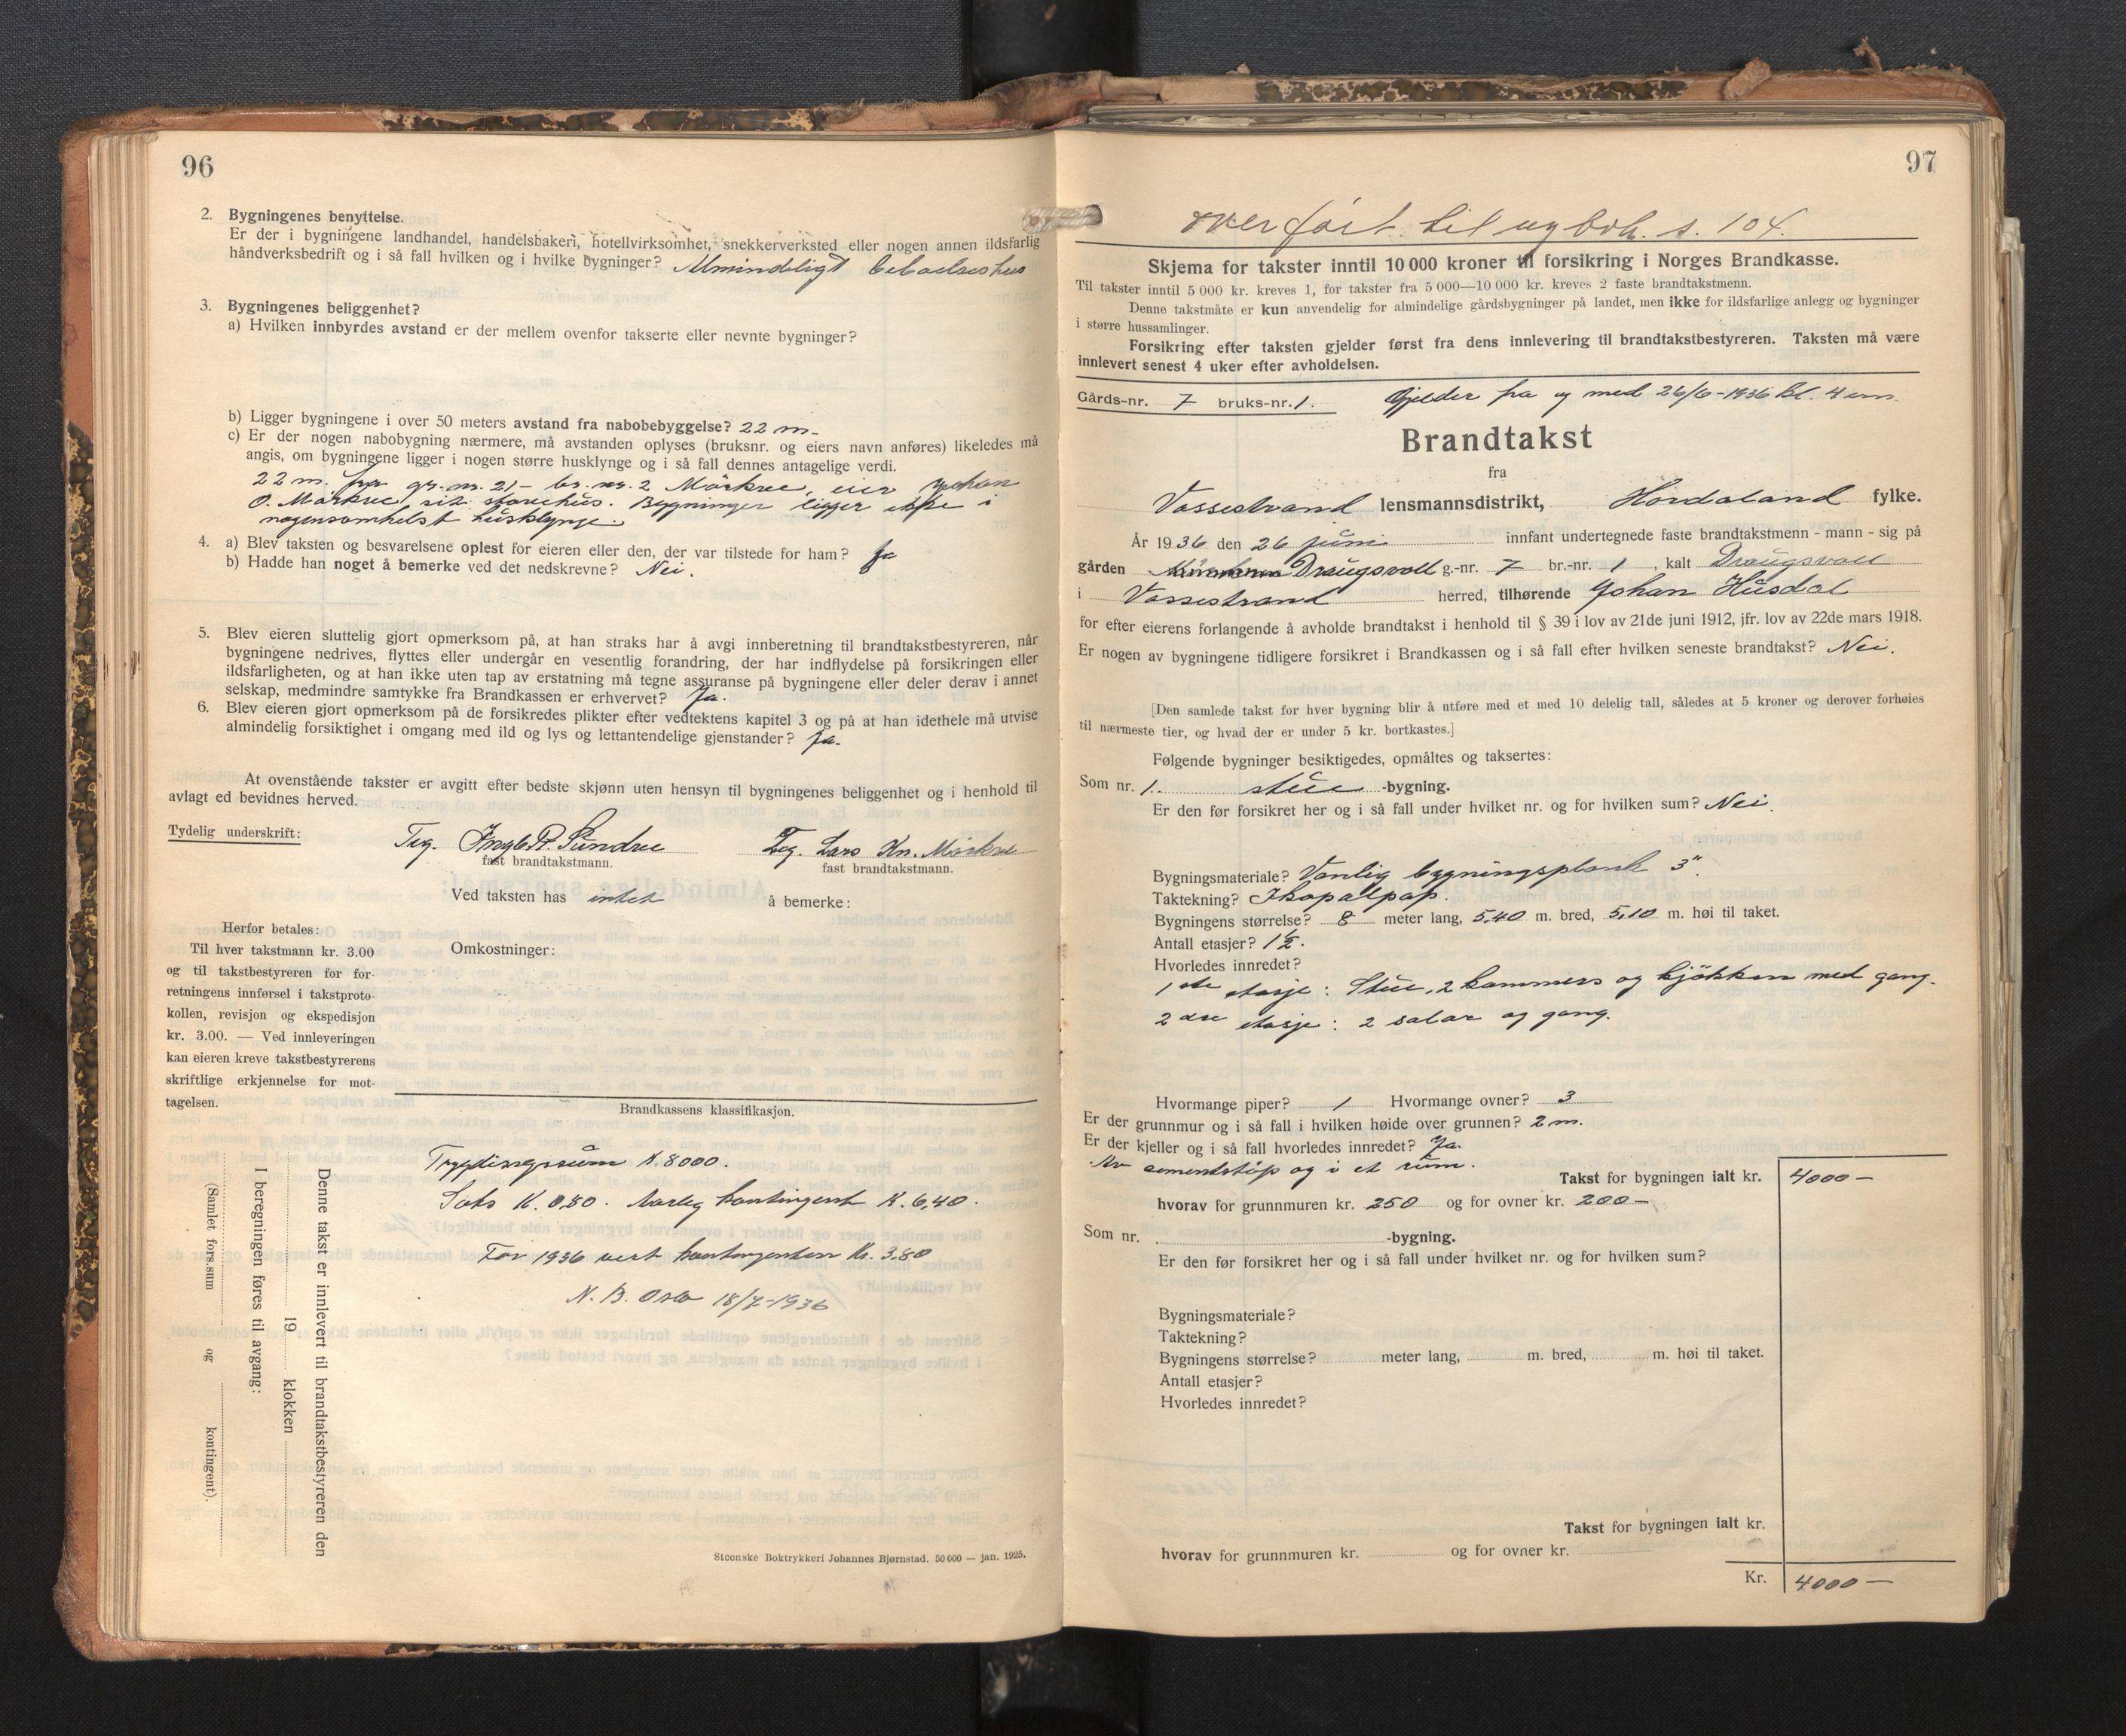 96
2. Bygningenes benyttelse.
Er der i bygningene landhandel, handelsbakeri, hotellvirksomhet, snekkerverksted eller nogen annen ildsfarlig
håndverksbedrift og i så fall hvilken og i hvilke bygninger? Almindeligt beboelseshus
3. Bygningenes beliggenhet?
a) Hvilken innbyrdes avstand er der mellem ovenfor takserte eller nevnte bygninger?
b) Ligger bygningene i over 50 meters avstand fra nabobebyggelse? 22 m.
c) Er der nogen nabobygning nærmere, må avstanden oplyses (bruksnr. og eiers navn anføres) likeledes må
angis, om bygningene ligger i nogen større husklynge og i så fall dennes antagelige verdi.
22 m. fra gr. nr. 21 - br. nr. 2 Mörkve, eier Johan
O. Mörkve sit storehus. Bygninger ligger ikke i
nogensomhelst husklynge.
4. a) Blev taksten og besvarelsene oplest for eieren eller den, der var tilstede for ham? Ja
b) Hadde han noget å bemerke ved det nedskrevne? Nei.
5. Blev eieren sluttelig gjort opmerksom på, at han straks har å avgi innberetning til brandtakstbestyreren, når
bygningene nedrives, flyttes eller undergår en vesentlig forandring, der har indflydelse på forsikringen eller
ildsfarligheten, og at han ikke uten tap av erstatning må tegne assuranse på bygningene eller deler derav i annet
selskap, medmindre samtykke fra Brandkassen er erhvervet? Ja.
6. Blev eieren gjort opmerksom på de forsikredes plikter efter vedtektens kapitel 3 og på at han idethele må utvise
almindelig forsiktighet i omgang med ild og lys og lettantendelige gjenstander? Ja.
At ovenstående takster er avgitt efter bedste skjønn uten hensyn til bygningenes beliggenhet og i henhold til
avlagt ed bevidnes herved.
Tydelig underskrift: Teg. Ingb. P. Sundve Teg. Lars Kn. Mörkve
fast brandtakstmann. fast brandtakstmann.
Ved taksten has intet å bemerke:
Herfor betales:
Til hver takstmann kr. 3.00
og til takstbestyreren for for-
retningens innførsel i takstproto-
kollen, revisjon og ekspedisjon
kr. 3.00. — Ved innleveringen
kan eieren kreve takstbestyrerens
skriftlige erkjennelse for mot-
tagelsen.
Omkostninger:
Brandkassens klassifikasjon.
Trygdingssum K. 8000.
Sats K. 0,80. Aarleg kontingent K. 6,40.
For 1936 vert kontingenten Kr. 3.80
N. B. Oslo 18/7-1936
Denne takst er innlevert til brandtakstbestyreren den
19 klokken
I beregningen føres til avgang:
(Samlet fors.sum og kontingent).
Steenske Boktrykkeri Johannes Bjørnstad. 50 000 — jan. 1925.
97
overført til ny bok. s. 104.
Skjema for takster inntil 10 000 kroner til forsikring i Norges Brandkasse.
Til takster inntil 5 000 kr. kreves 1, for takster fra 5 000—10 000 kr. kreves 2 faste brandtakstmenn.
Denne takstmåte er kun anvendelig for almindelige gårdsbygninger på landet, men ikke for ildsfarlige anlegg og bygninger
i større hussamlinger.
Forsikring efter taksten gjelder først fra dens innlevering til brandtakstbestyreren. Taksten må være
innlevert senest 4 uker efter avholdelsen.
Gårds-nr. 7 bruks-nr. 1. Gjelder fra og med 26/6-1936 kl. 4 em.
Brandtakst
fra
Vossestrand lensmannsdistrikt, Hordaland fylke.
År 1936 den 26 juni innfant undertegnede faste brandtakstmenn - mann - sig på
gården Draugsvoll g.-nr. 7 br.-nr. 1, kalt Draugsvoll
i Vossestrand herred, tilhørende Johan Husdal
for efter eierens forlangende å avholde brandtakst i henhold til § 39 i lov av 21de juni 1912, jfr. lov av 22de mars 1918.
Er nogen av bygningene tidligere forsikret i Brandkassen og i så fall efter hvilken seneste brandtakst? Nei.
[Den samlede takst for hver bygning blir å utføre med et med 10 delelig tall, således at 5 kroner og derover forhøies
til nærmeste tier, og hvad der er under 5 kr. bortkastes.]
Følgende bygninger besiktigedes, opmåltes og taksertes:
Som nr. 1. stue -bygning.
Er den før forsikret her og i så fall under hvilket nr. og for hvilken sum? Nei.
Bygningsmateriale? Vanlig bygningsplank 3".
Taktekning? Ikopalpap.
Bygningens størrelse? 8 meter lang, 5,40 m. bred, 5,10 m. høi til taket.
Antall etasjer? 1½.
Hvorledes innredet?
1ste etasje: Stue, 2 kammers og kjökken med gang.
2dre etasje: 2 salar og gang.
Hvormange piper? 1 Hvormange ovner? 3
Er der grunnmur og i så fall i hvilken høide over grunnen? 2 m.
Er der kjeller og i så fall hvorledes innredet? Ja.
Av sementstöp og i et rum.
Takst for bygningen ialt kr. 4000 —
hvorav for grunnmuren kr. 250 og for ovner kr. 200 —
Som nr. -bygning.
Er den før forsikret her og i så fall under hvilket nr. og for hvilken sum?
Bygningsmateriale?
Taktekning?
Bygningens størrelse? meter lang, m. bred, m. høi til taket.
Antall etasjer?
Hvorledes innredet?
Takst for bygningen ialt kr.
hvorav for grunnmuren kr. og for ovner kr.
Kr. 4000 —